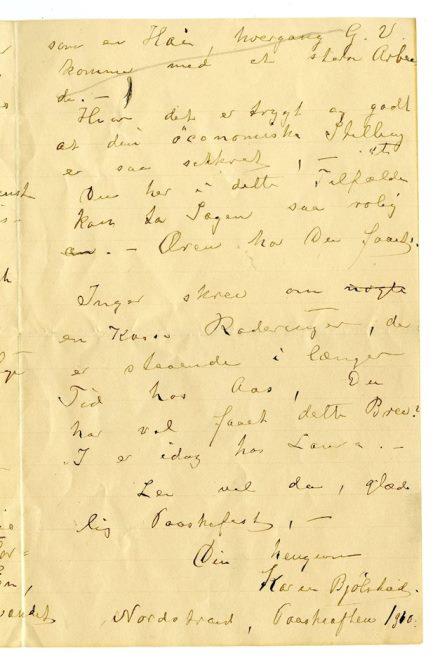 som en Haie, hvergang G. V.
kommer med et større Arbei
de. —
Hvor det er trygt og godt
at din økonomiske Stilling
er saa sikkret, — at
Du her i dette Tilfælde
kan ta Sagen saa rolig
an. — Æren har Du faaet.
Inger skrev om nogle
en Kasse Raderinger, der
er staaende i længer
Tid hos Aas, Du
har vel faaet dette Brev?
I er idag hos Laura. —
Lev vel da, glæde
lig Paaskefest, —
Din hengivne
Karen Bjølstad.
Nordstrand, Paaskeaften 1910.